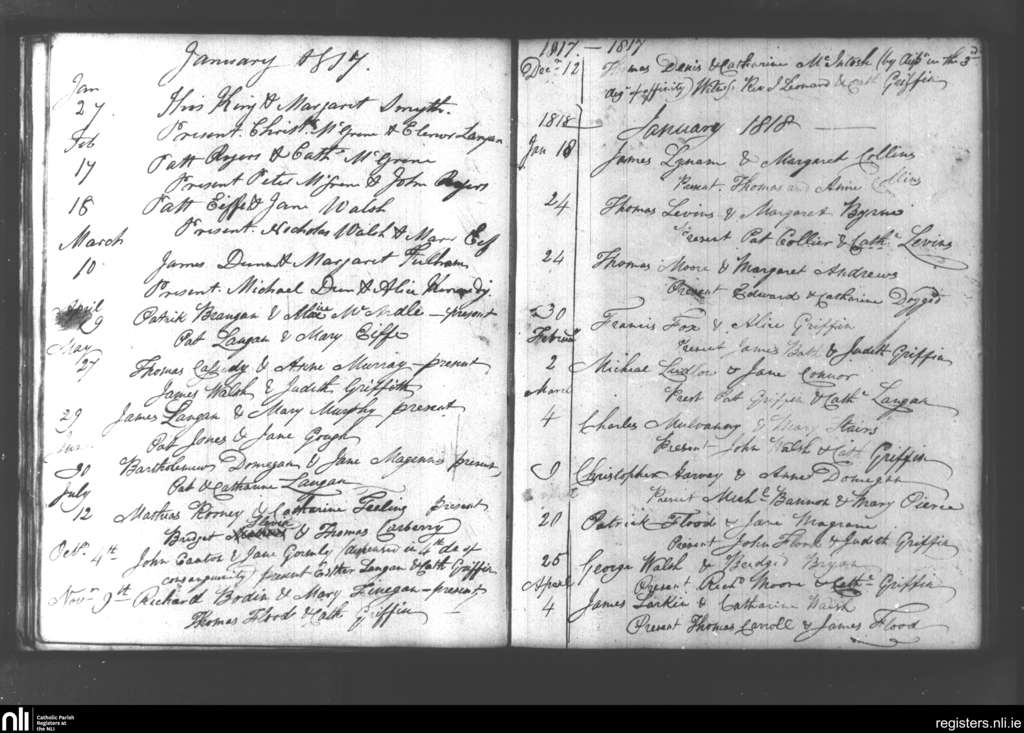 January 1817.
Jan
27 Thos King & Margaret Smyth.
Present. Christr McGrene & Elenor Langan
Feb
17 Patt Rogers & Cathe McGrene
Present Peter McGrene & John Rogers
18 Patt Eiffe & Jane Walsh
Present. Nicholas Walsh & Mary Eiffe
March
10 James Dunn & Margaret Fulham
Present. Michael Dun & Alice Kennedy.
April
29 Patrik Brangan & Alice McNedle – present
Pat Langan & Mary Eiffe
May
27 Thomas Cassidy & Anne Murray – present
James Walsh & Judeth Griffith
29 James Langan & Mary Murphy present
Pat Jones & Jane Gough
June
30 Bartholemew Donegan & Jane Magennis present
Pat & Catharine Langan
July
12 Mathias Korney & Catharine Feeling present
Bridget & Thomas Carberry
Octr 4th John Cantor & Jane Gormly (dispensed in 4th de of
consanguinity) present Esther Langan & Cath Griffin
Novr 9th Richard Bodin & Mary Finegan – present
Thomas Flood & Cath Griffin
1817 – 1817
Decr 12 Thomas Denis & Catharine McIntosh (by dispn in the 3d
deg of affinity) Witns. Revd J Leonard & Cath Griffin
1818 January 1818
Jan 18 James Lynam & Margaret Collins
Present. Thomas and Anne Collins
24 Thomas Levins & Margaret Byrne
Present Pat Collier & Cathe Levins
24 Thomas Moore & Margaret Andrews
Present Edward & Catharine Dogged
30 Francis Fox & Alice Griffin
Present James & Judeth Griffin
Februa
2 Micheal Ludlow & Jane Connor
Prest Pat Griffin & Cathe Langan
March
4 Charles Mulvaney & Mary Stairs
Present John Walsh & Cath Griffin
9 Christopher Harvey & Anne Donegan
Present Michl Bannon & Mary Pierce
20 Patrick Flood & Jane Magrane
Present John Flood & Judeth Griffin
25 George Walsh & Bridged Bryan
Present Revd Moore & Cathe Griffin
April
4 James Larkin & Catharine Walsh
Present Thomas Carroll & James Flood
nli
Catholic Parish
Registers at
the NLI
registers.nli.ie